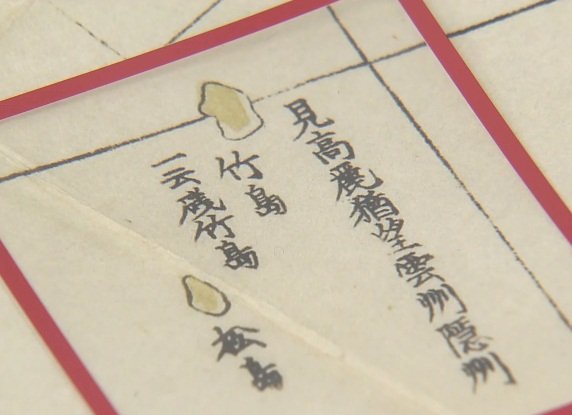 見高麗猶望雲州隠州
竹島
一云磯竹島
松島